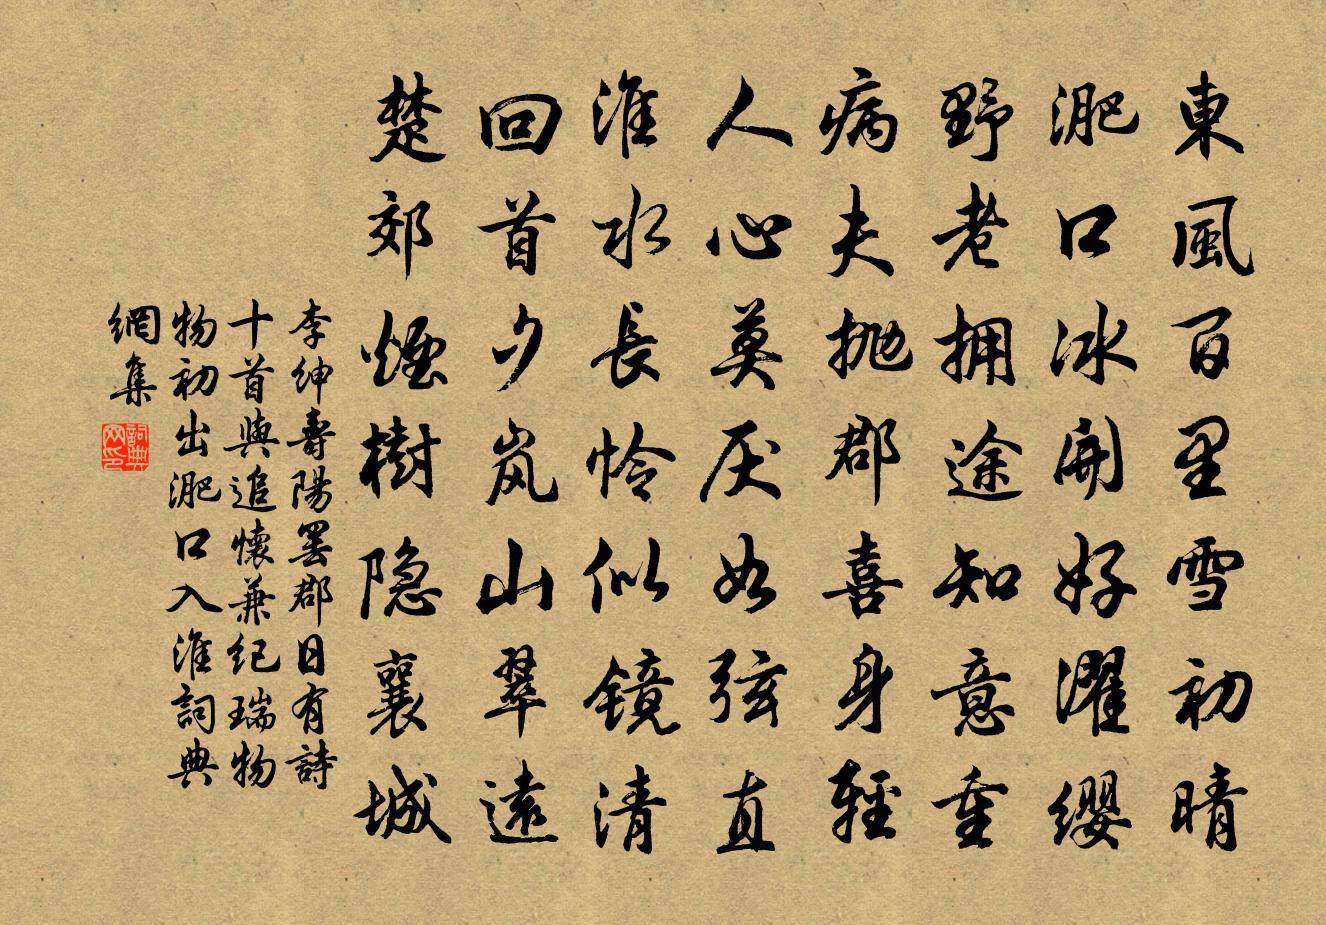 東風百里雪初晴
淝口冰開好濯缨
野老拥途知意重
病夫抛郡喜身輕
人心莫厌如弦直
淮水長怜似镜清
回首夕岚山翠遠
楚郊煙樹隐襄城
李绅壽陽罢郡日有詩
十首與追懷兼纪瑞物
物初出淝口入淮詞典
網集
詞典网印